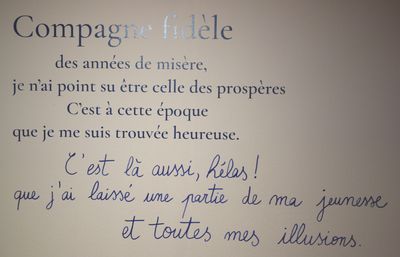 Compagne fidèle
des années de misère,
je n'ai point su être celle des prospères
C'est à cette époque
que je me suis trouvée heureuse.
C'est là aussi, hélas !
que j'ai laissé une partie de ma jeunesse
et toutes mes illusions.